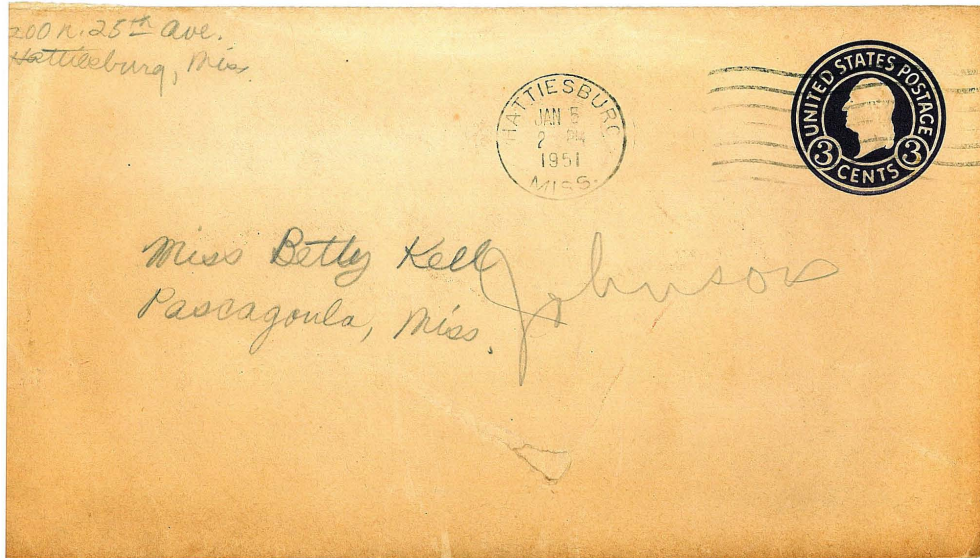 200 N. 25th Ave.
Hattiesburg, Miss
HATTIESBURG
JAN 5
2 PM
1951
MISS.
UNITED STATES POSTAGE
3 CENTS 3
Miss Betty Kell Johnson
Pascagoula, Miss.